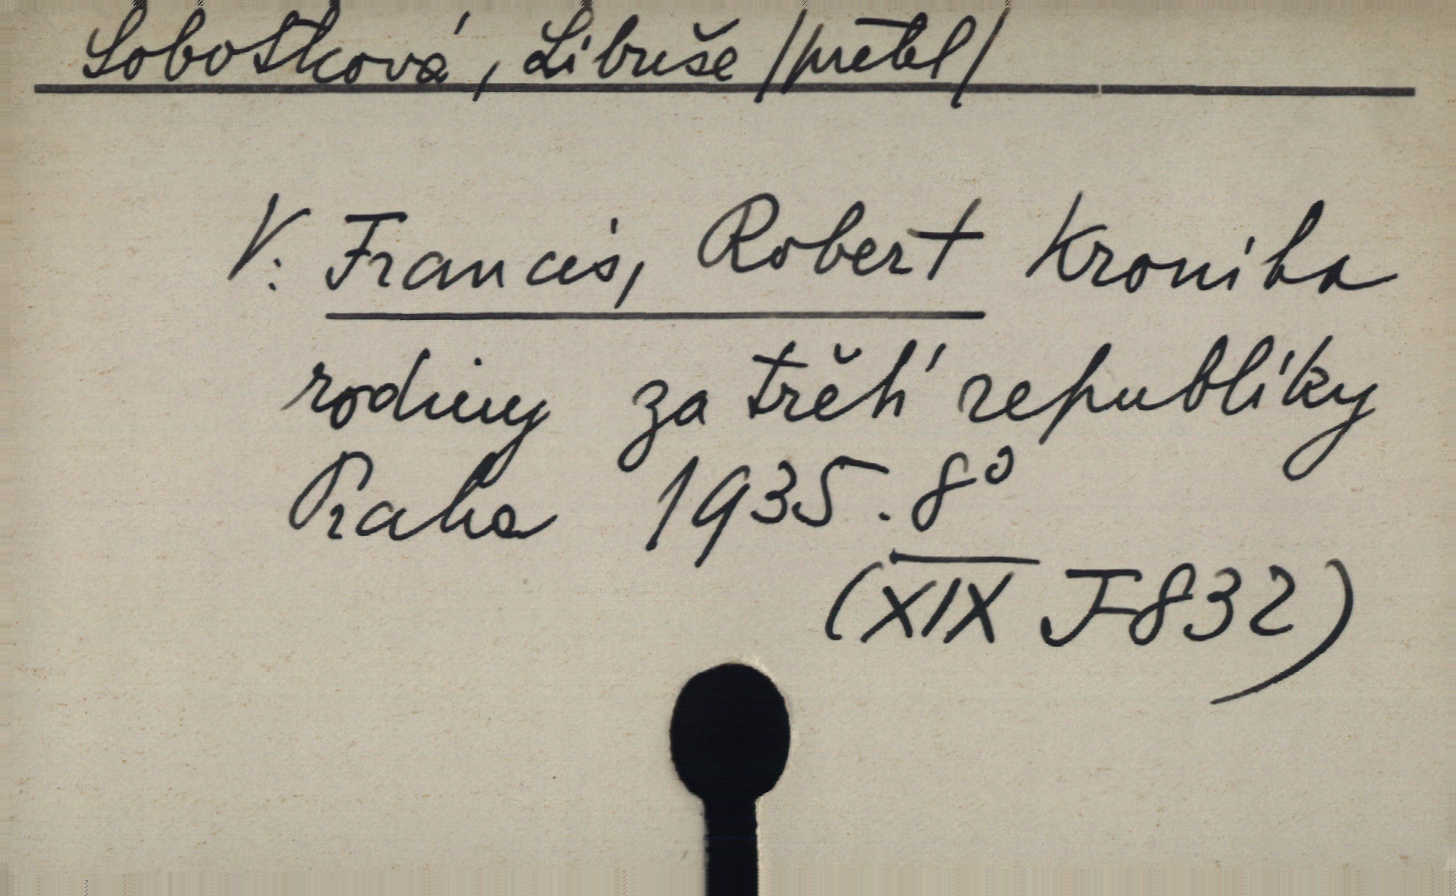 Sobotková, Libuše /přetel/
V: Francis, Robert Kronika
rodiny za třetí republiky
Praha 1935. 8°
(XIX J-832)